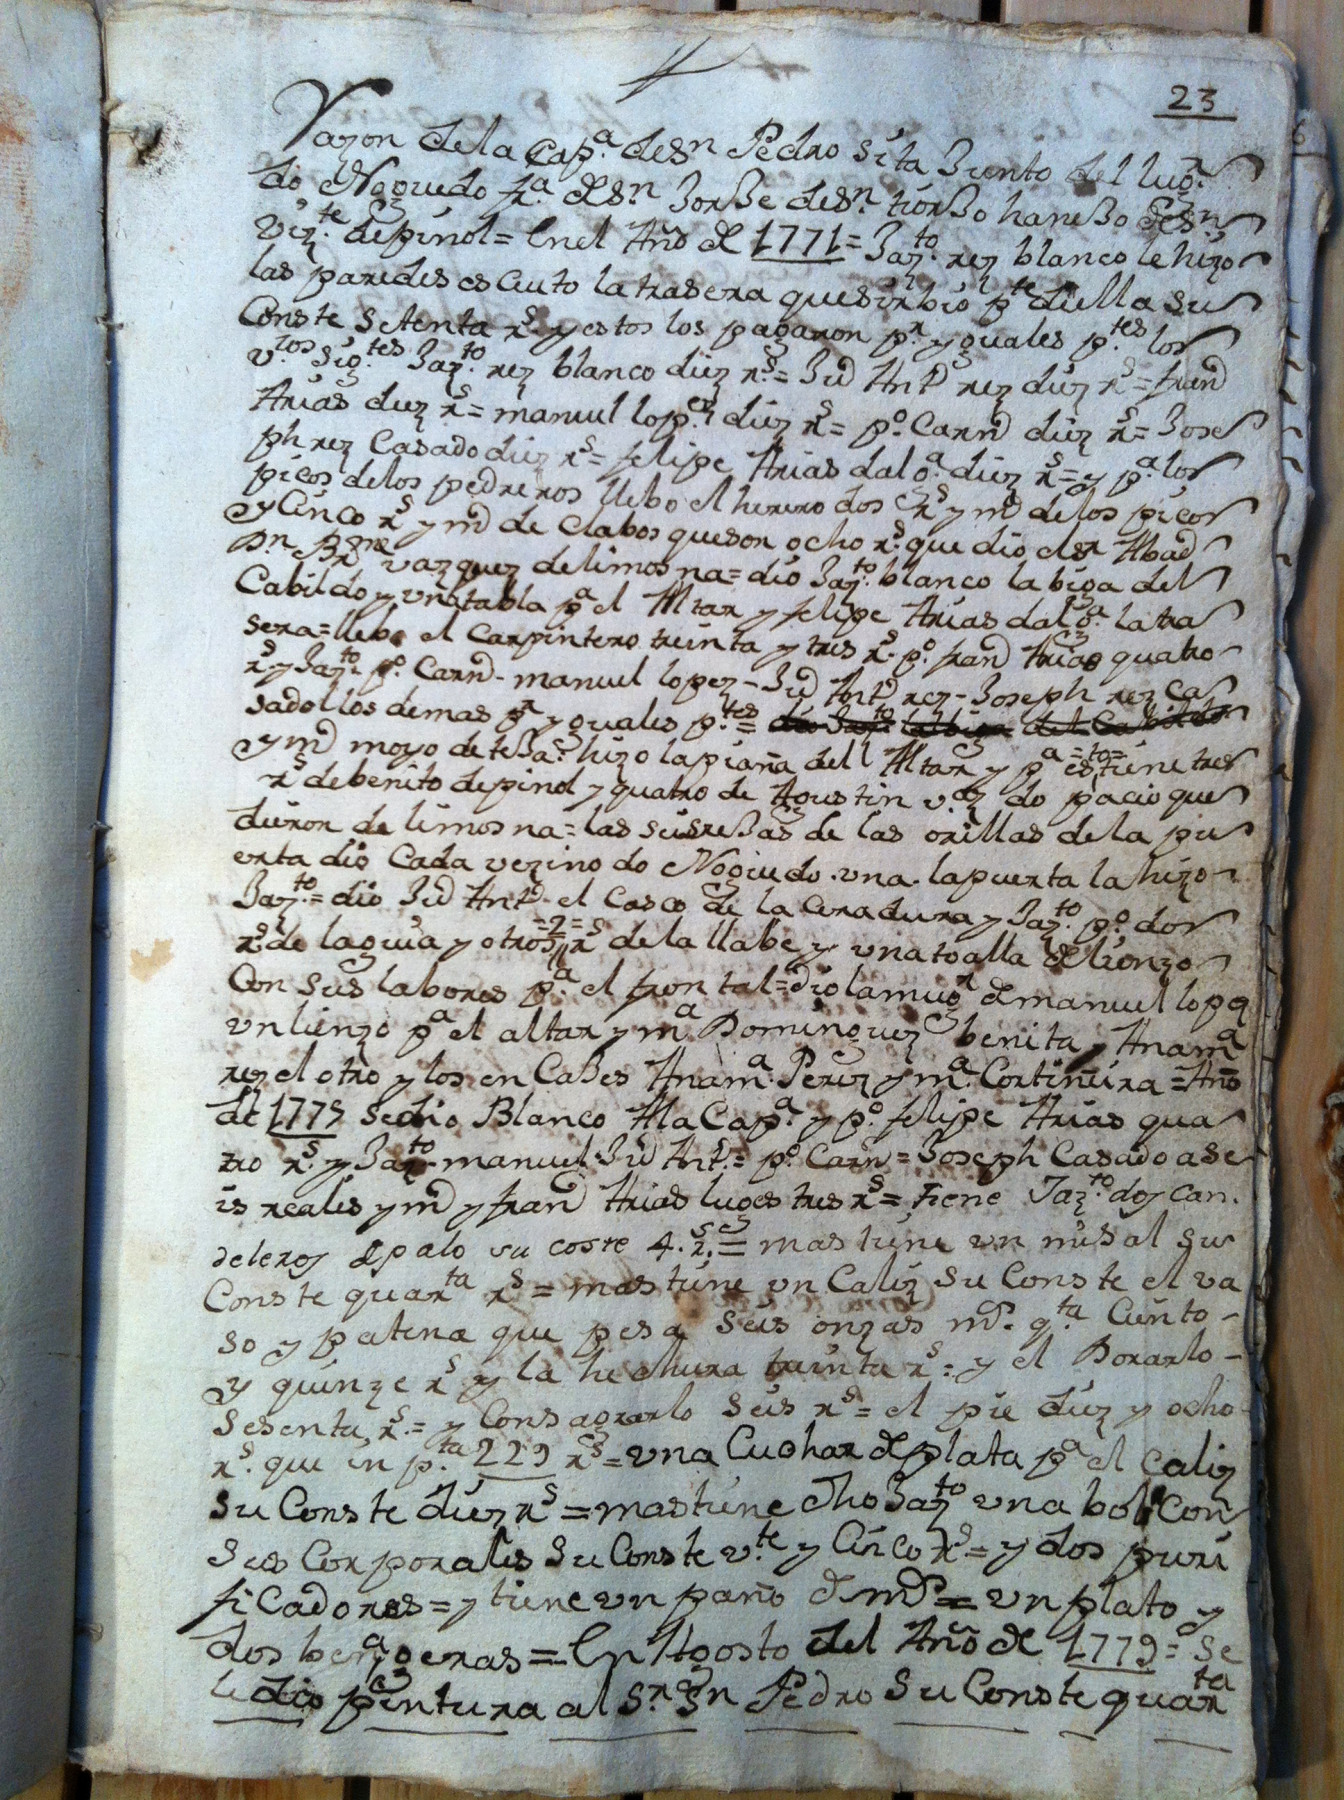 23
Razon de la Cap.ª de Sn Pedro sita Junto del lug.r
do Noguedo fr.ª de S.n Jorge de S.n tiorjo hanejo de S.n
Viz.te de pinol = En el Año de 1771 = Jaz.to rez blanco le hizo
las paredes escluto la trasera que sirbio p.te della su
Conste setenta r.s y estos los pagaron p.r yguales p.tes los
v.zos sig.tes Jaz.to rez blanco diez r.s = Jud Antº rez diez r.s = fran.co
Arias diez r.s = manuel lop.ez diez r.s = p.º Carn.º diez r.s = Jose
ph rez Casado diez r.s = felipe Arias dal g.ª diez r.s = y p.ª los
picos de los pedreros llebo el herrero dos r.s y mº de los picos
y Cinco r.s y mº de Clabos que son ocho r.s que dio el S.r Abad
D.n vazquez de limosna = dio Jaz.to blanco la biga del
Cabildo y una tabla p.ª el Altar y felipe Arias dal g.ª la tra
sera = llebo el Carpintero treinta y tres r.s p.º franº Arias quatro
r.s y Jaz.to p.º Carnº - manuel lopez - Jud Antº rez - Joseph rez Ca
sado llos demas p.r yguales p.tes = dio Jaz.to la biga del Cabildo
y mº moyo de teja hizo la piaña dell Altar y p.ª esto tiene tres
r.s de benito de pinol y quatro de Agustin v.ez do pacio que
dieron de limosna = las seis rejas de las orillas de la pu
erta dio Cada vezino do Nogiedo una la puerta la hizo
Jaz.to = dio Jud Antº el Casco de la Ceradura y Jaz.to p.º dos
r.s de la guia y otros =2= r.s de la llabe y una toalla de lienzo
Con sus labores p.ª el frontal = dio la mug.r de manuel lopez
un lienzo p.ª el altar y m.ª Dominguez benita y Ana m.ª
rez el otro y los encajes Ana m.ª Perez y m.ª Cortiñeira = Año
de 1775 se dio Blanco A la Cap.ª y p.º felipe Arias qua
tro r.s y Jaz.to - manuel Jud Ant.º = p.º Carnº = Joseph Casado a se
is reales y mº y franº Arias luges tres r.s = tiene Jaz.to dos Can
deleros de palo su coste 4. r.s = mas tiene un misal su
Conste quar.ta r.s = mas tiene un Caliz su Conste el va
so y patena que pesa seis onzas mº. q.ta Ciento
y quinze r.s y la hechura treinta r.s = y el Dorarlo
sesenta r.s = y Consagrarlo seis r.s = el pie diez y ocho
r.s que en p.ta 229 r.s = una Cuchar de plata p.ª el Caliz
su Conste diez r.s = mas tiene dho Jaz.to una bolsa Con
sus Corporales su Conste v.te y Cinco r.s = y dos puri
ficadores = y tiene un paño de mº = un plato y
dos benageras = En Agosto del Año de 1779 = se
le dio pintura al S.r Sn Pedro su Conste quar.ta